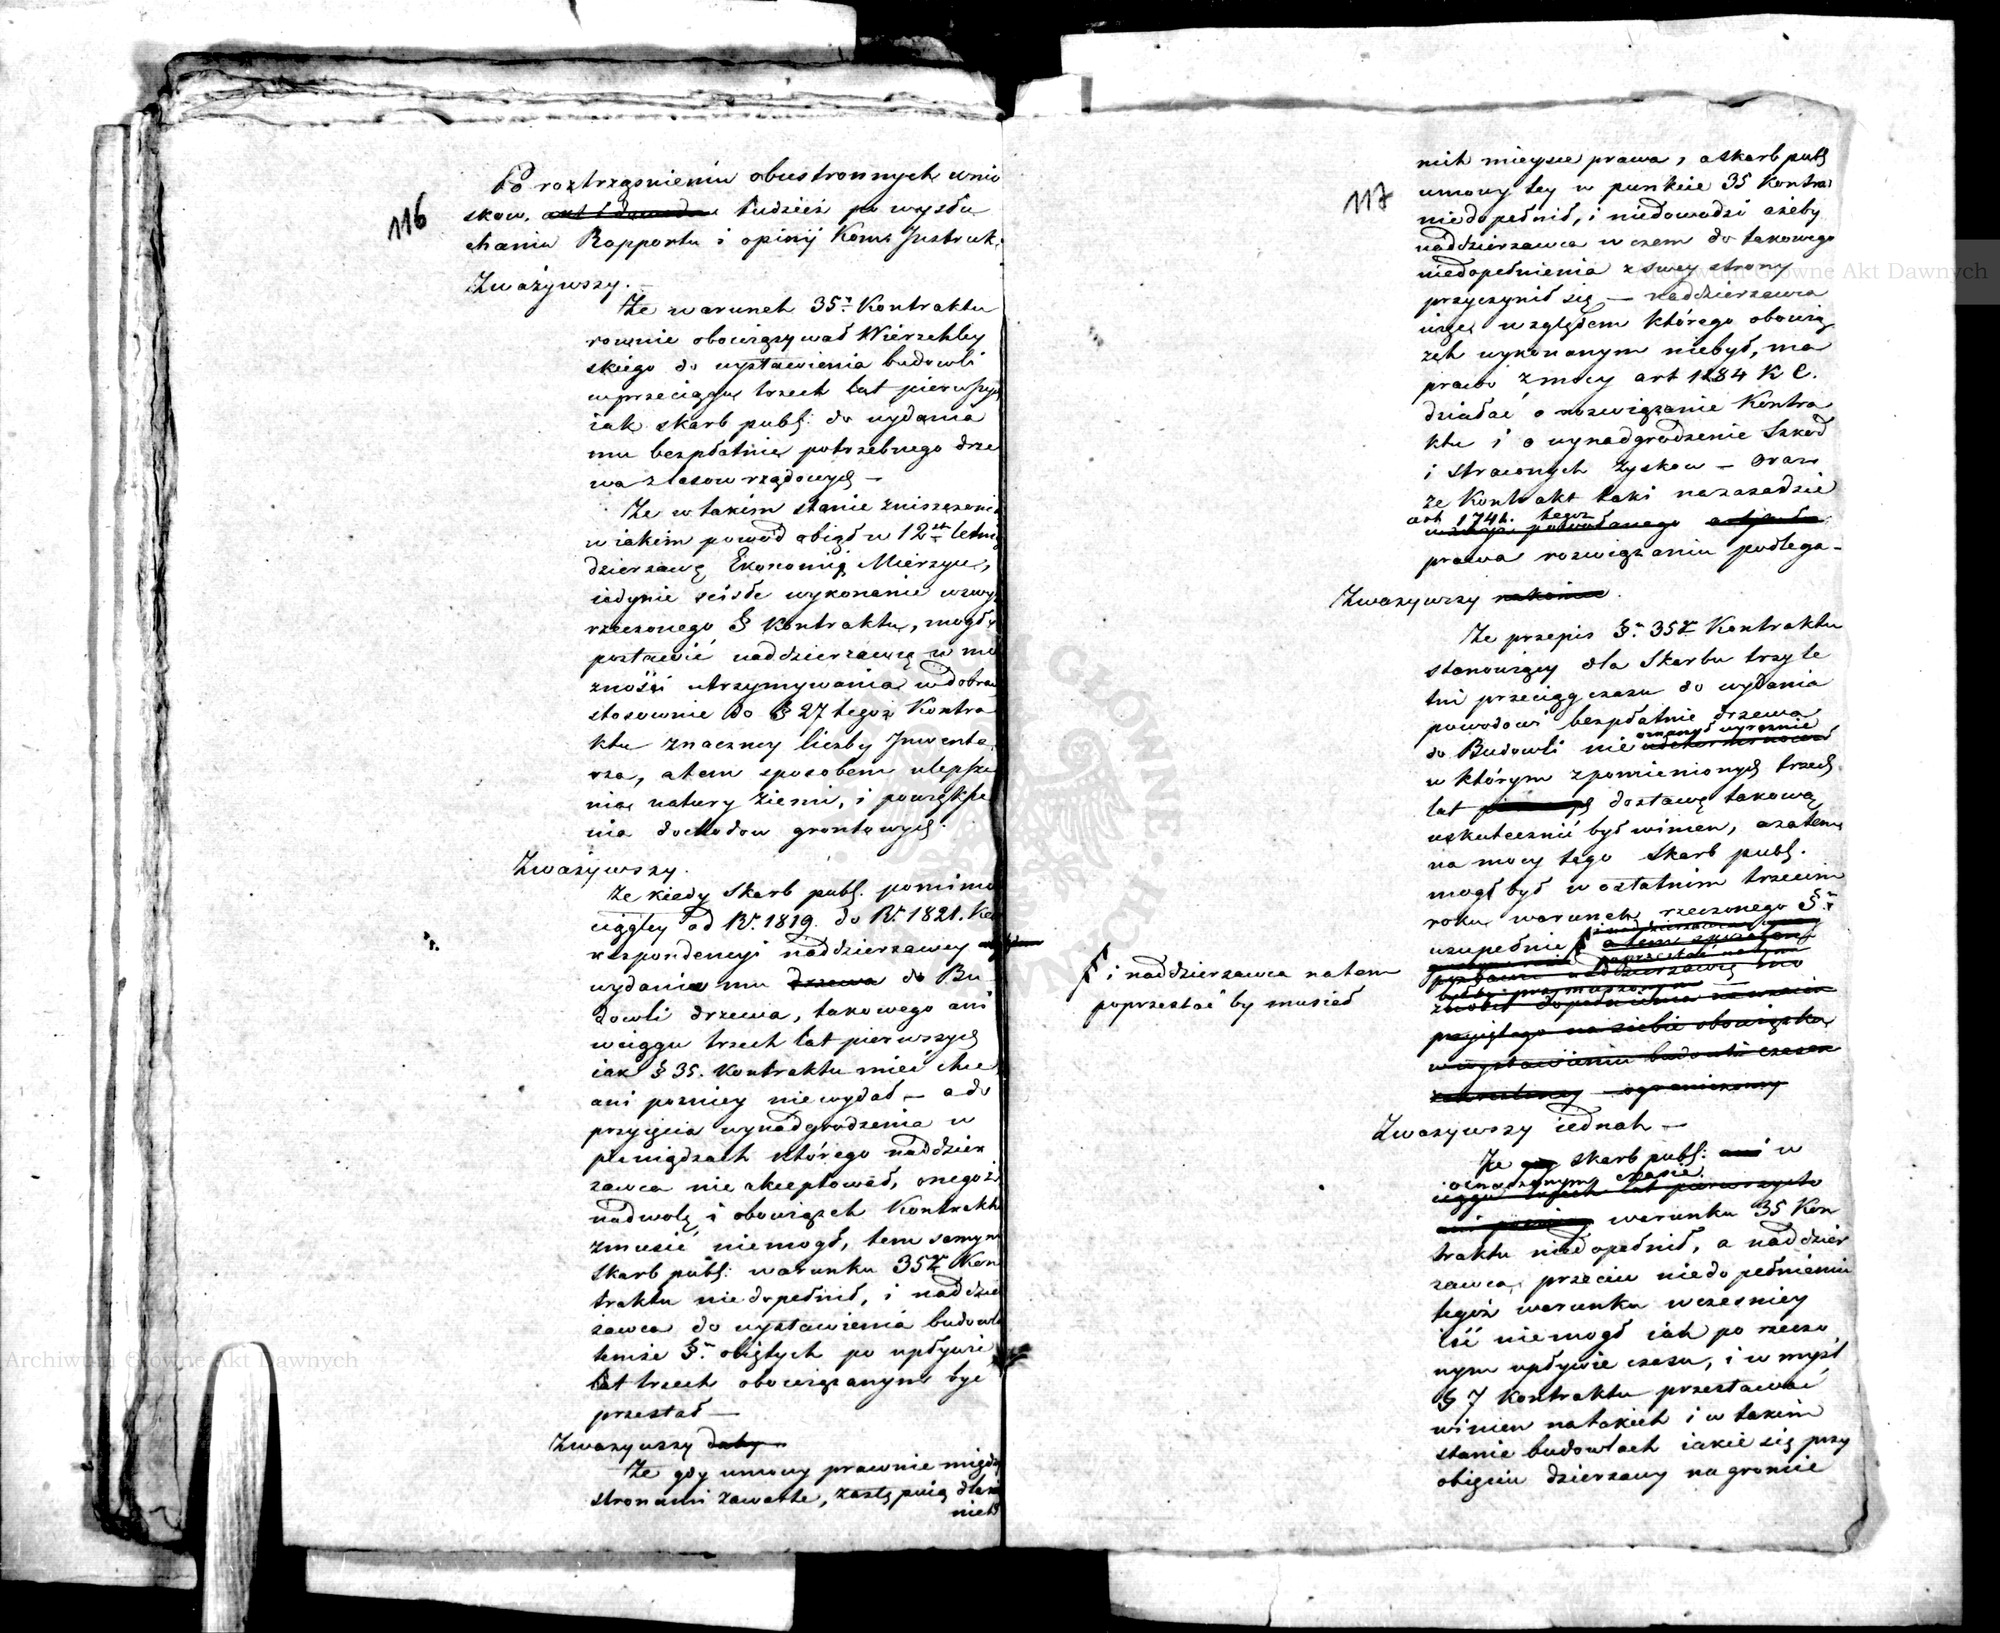 116
Po roztrząśnieniu obustronnych wnio
skow, tudzież po wysłu
chaniu Rapportu i opinij Kom: Instruk:
Zważywszy. —
Że warunek 35ty Kontraktu
rownie obowiązywał Wierzchley
skiego do wystawienia budowli
wprzeciągu trzech lat pierwszych
iak skarb publ: do wydania
mu bezpłatnie potrzebnego drze
wa z lasow rządowych —
Że w takim stanie zniszczenia
w iakim powod obiął w 12to letnią
dzierzawę Ekonomię Mierzyn,
iedynie ścisłe wykonanie wzwyż
rzeczonego § Kontraktu, mogło
postawić naddzierzawcę w mo
żności utrzymywania w dobrach
stosownie do § 27 tegoż Kontra
ktu znaczney liczby Inwenta
rza, a tem sposobem ulepsze
nia natury ziemi, i powiększe
nia dochodow grontowych.
Zważywszy.
Że kiedy Skarb publ. pomimo
ciągłey od Ru 1819. do Ru 1821. Kor
respondencyi naddzierzawcy
wydania mu drzewa do Bu
dowli drzewa, takowego ani
w ciągu trzech lat pierwszych
iak § 35. Kontraktu mieć chce
ani pozniey niewydał — a do
przyięcia wynadgrodzenia w
pieniądzach którego naddzier
zawca nie akceptował, onegoż
nadwolę i obowiązek Kontraktu
zmusić niemogł, tem samym
Skarb publ: warunku 35go Kon
traktu niedopełnił, i naddzier
zawca do wystawienia budowli
temże §em obiętych po upływie
lat trzech obowiązanym być
przestał —
Zwazywszy
Że gdy umowy prawnie między
stronami zawarte, zastępuią dla nich
nich
117
nich mieysce prawa, a skarb publ
umowy tey w punkcie 35 Kontra:
niedopełnił, i niedowodzi ażeby
naddzierzawca w czem do takowego
niedopełnienia z swey strony
przyczynił się — naddzierzawca
więc względem którego obowią
zek wykonanym niebył, ma
prawo z mocy art 1184 K C.
działać o rozwiązanie Kontra
ktu i o wynadgrodzenie Szkod
i straconych Zyskow — oraz
że Kontrakt taki na zasadzie
art 1741. tegoż
wyżey powołanego artykułu
prawa rozwiązaniu podlega —
Zwazywszy nakoniec.
Że przepis §u 35go Kontraktu
stanowiący dla Skarbu trzyle
tni przeciąg czasu do wydania
powodowi bezpłatnie drzewa
do Budowli nie oznaczył wyraznie
w którym z pomienionych trzech
lat dostawę takową
uskutecznić był winien, a zatem
na mocy tego Skarb publ.
mogł był w ostatnim trzecim
roku warunek rzeczonego §u
uzupełnić
i naddzierzawca na tem
poprzestać by musiał
przyiętego na siebie obowiązku
w wystawieniu budowli czasem
ograniczony
Zwazywszy iednak —
Że skarb publ: w
oznaczonym czasie
ciągu trzech lat pierwszych
warunku 35 Kon
traktu niedopełnił, a naddzier
zawca, przeciw niedopełnieniu
tegoż warunku wcześniey
iść niemogł iak po rzeczo
nym upływie czasu, i w myśl
§ 7 Kontraktu przestawać
winien na takich i w takim
stanie budowlach iakie się przy
obięciu dzierzawy na groncie
Archiwum Główne Akt Dawnych
Archiwum Główne Akt Dawnych